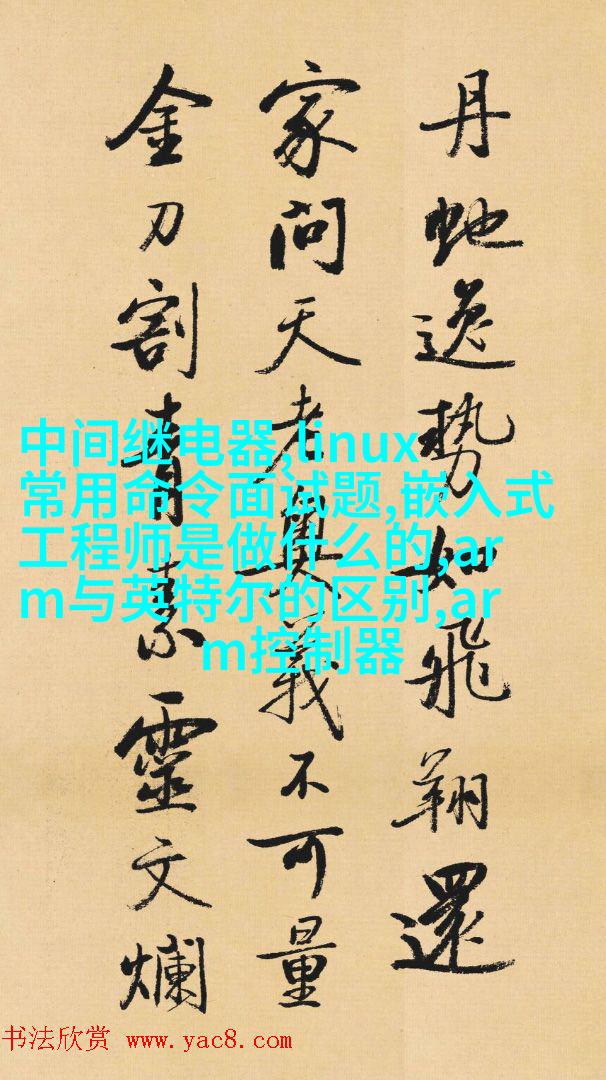 丹虵逸勢如飛翔還
家問天老奧義不可量
金刀割青素靈文爛
中间继电器,linux
常用命令面试题,嵌入式
工程师是做什么的,ar
m与英特尔的区别,ar
m控制器
书法欣赏 www.yac8.com